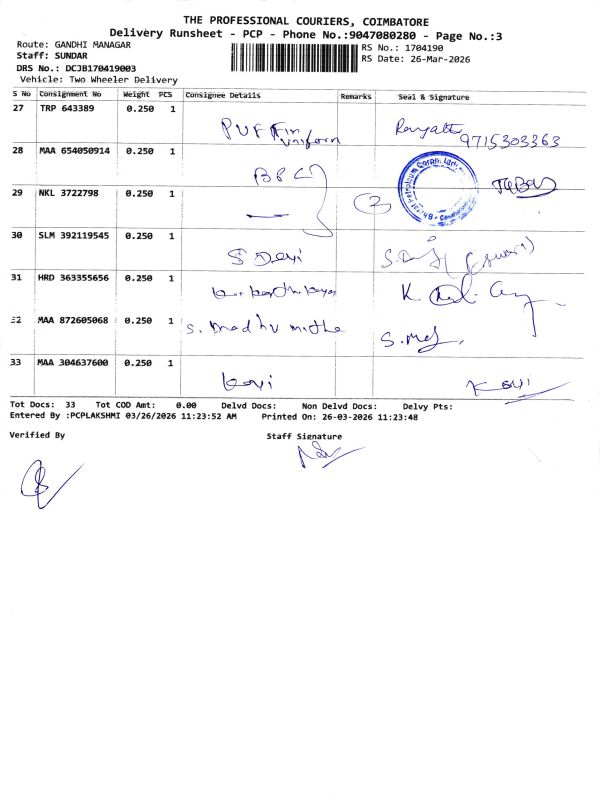 THE PROFESSIONAL COURIERS, COIMBATORE
Delivery Runsheet - PCP - Phone No.:9047080280 - Page No.:3
Route: GANDHI MANAGAR
Staff: SUNDAR
DRS No.: DCJB170419003
Vehicle: Two Wheeler Delivery
RS No.: 1704190
RS Date: 26-Mar-2026
S No Consignment No Weight PCS Consignee Details Remarks Seal & Signature
27 TRP 643389 0.250 1
9715303363
28 MAA 654050914 0.250 1 BPCL
29 NKL 3722798 0.250 1 2
30 SLM 392119545 0.250 1 S Devi
31 HRD 363355656 0.250 1
32 MAA 872605068 0.250 1 S. Madhumitha
33 MAA 304637600 0.250 1
Tot Docs: 33 Tot COD Amt: 0.00 Delvd Docs: Non Delvd Docs: Delvy Pts:
Entered By :PCPLAKSHMI 03/26/2026 11:23:52 AM Printed On: 26-03-2026 11:23:48
Verified By Staff Signature